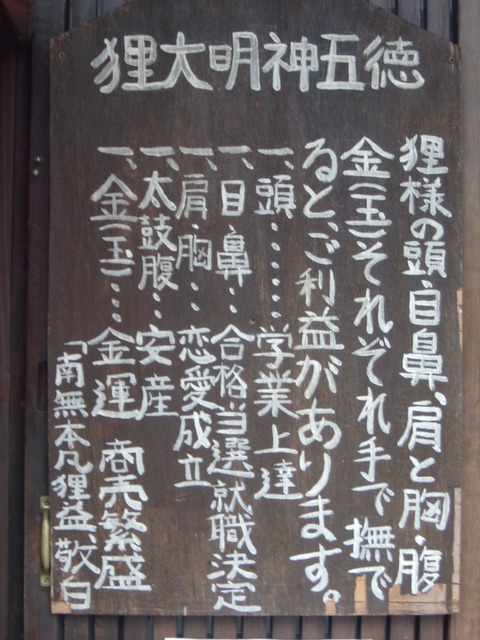 狸大明神五徳
狸様の頭、目鼻、肩と胸・腹
金(玉)それぞれ手で撫で
ると、ご利益があります。
一、頭・・・・・学業上達
一、目・鼻・・合格当選就職決定
一、肩・胸・・恋愛成立
一、太鼓腹・・安産
一、金(玉)・・・金運 商売繁盛
「南無本凡狸益、敬白